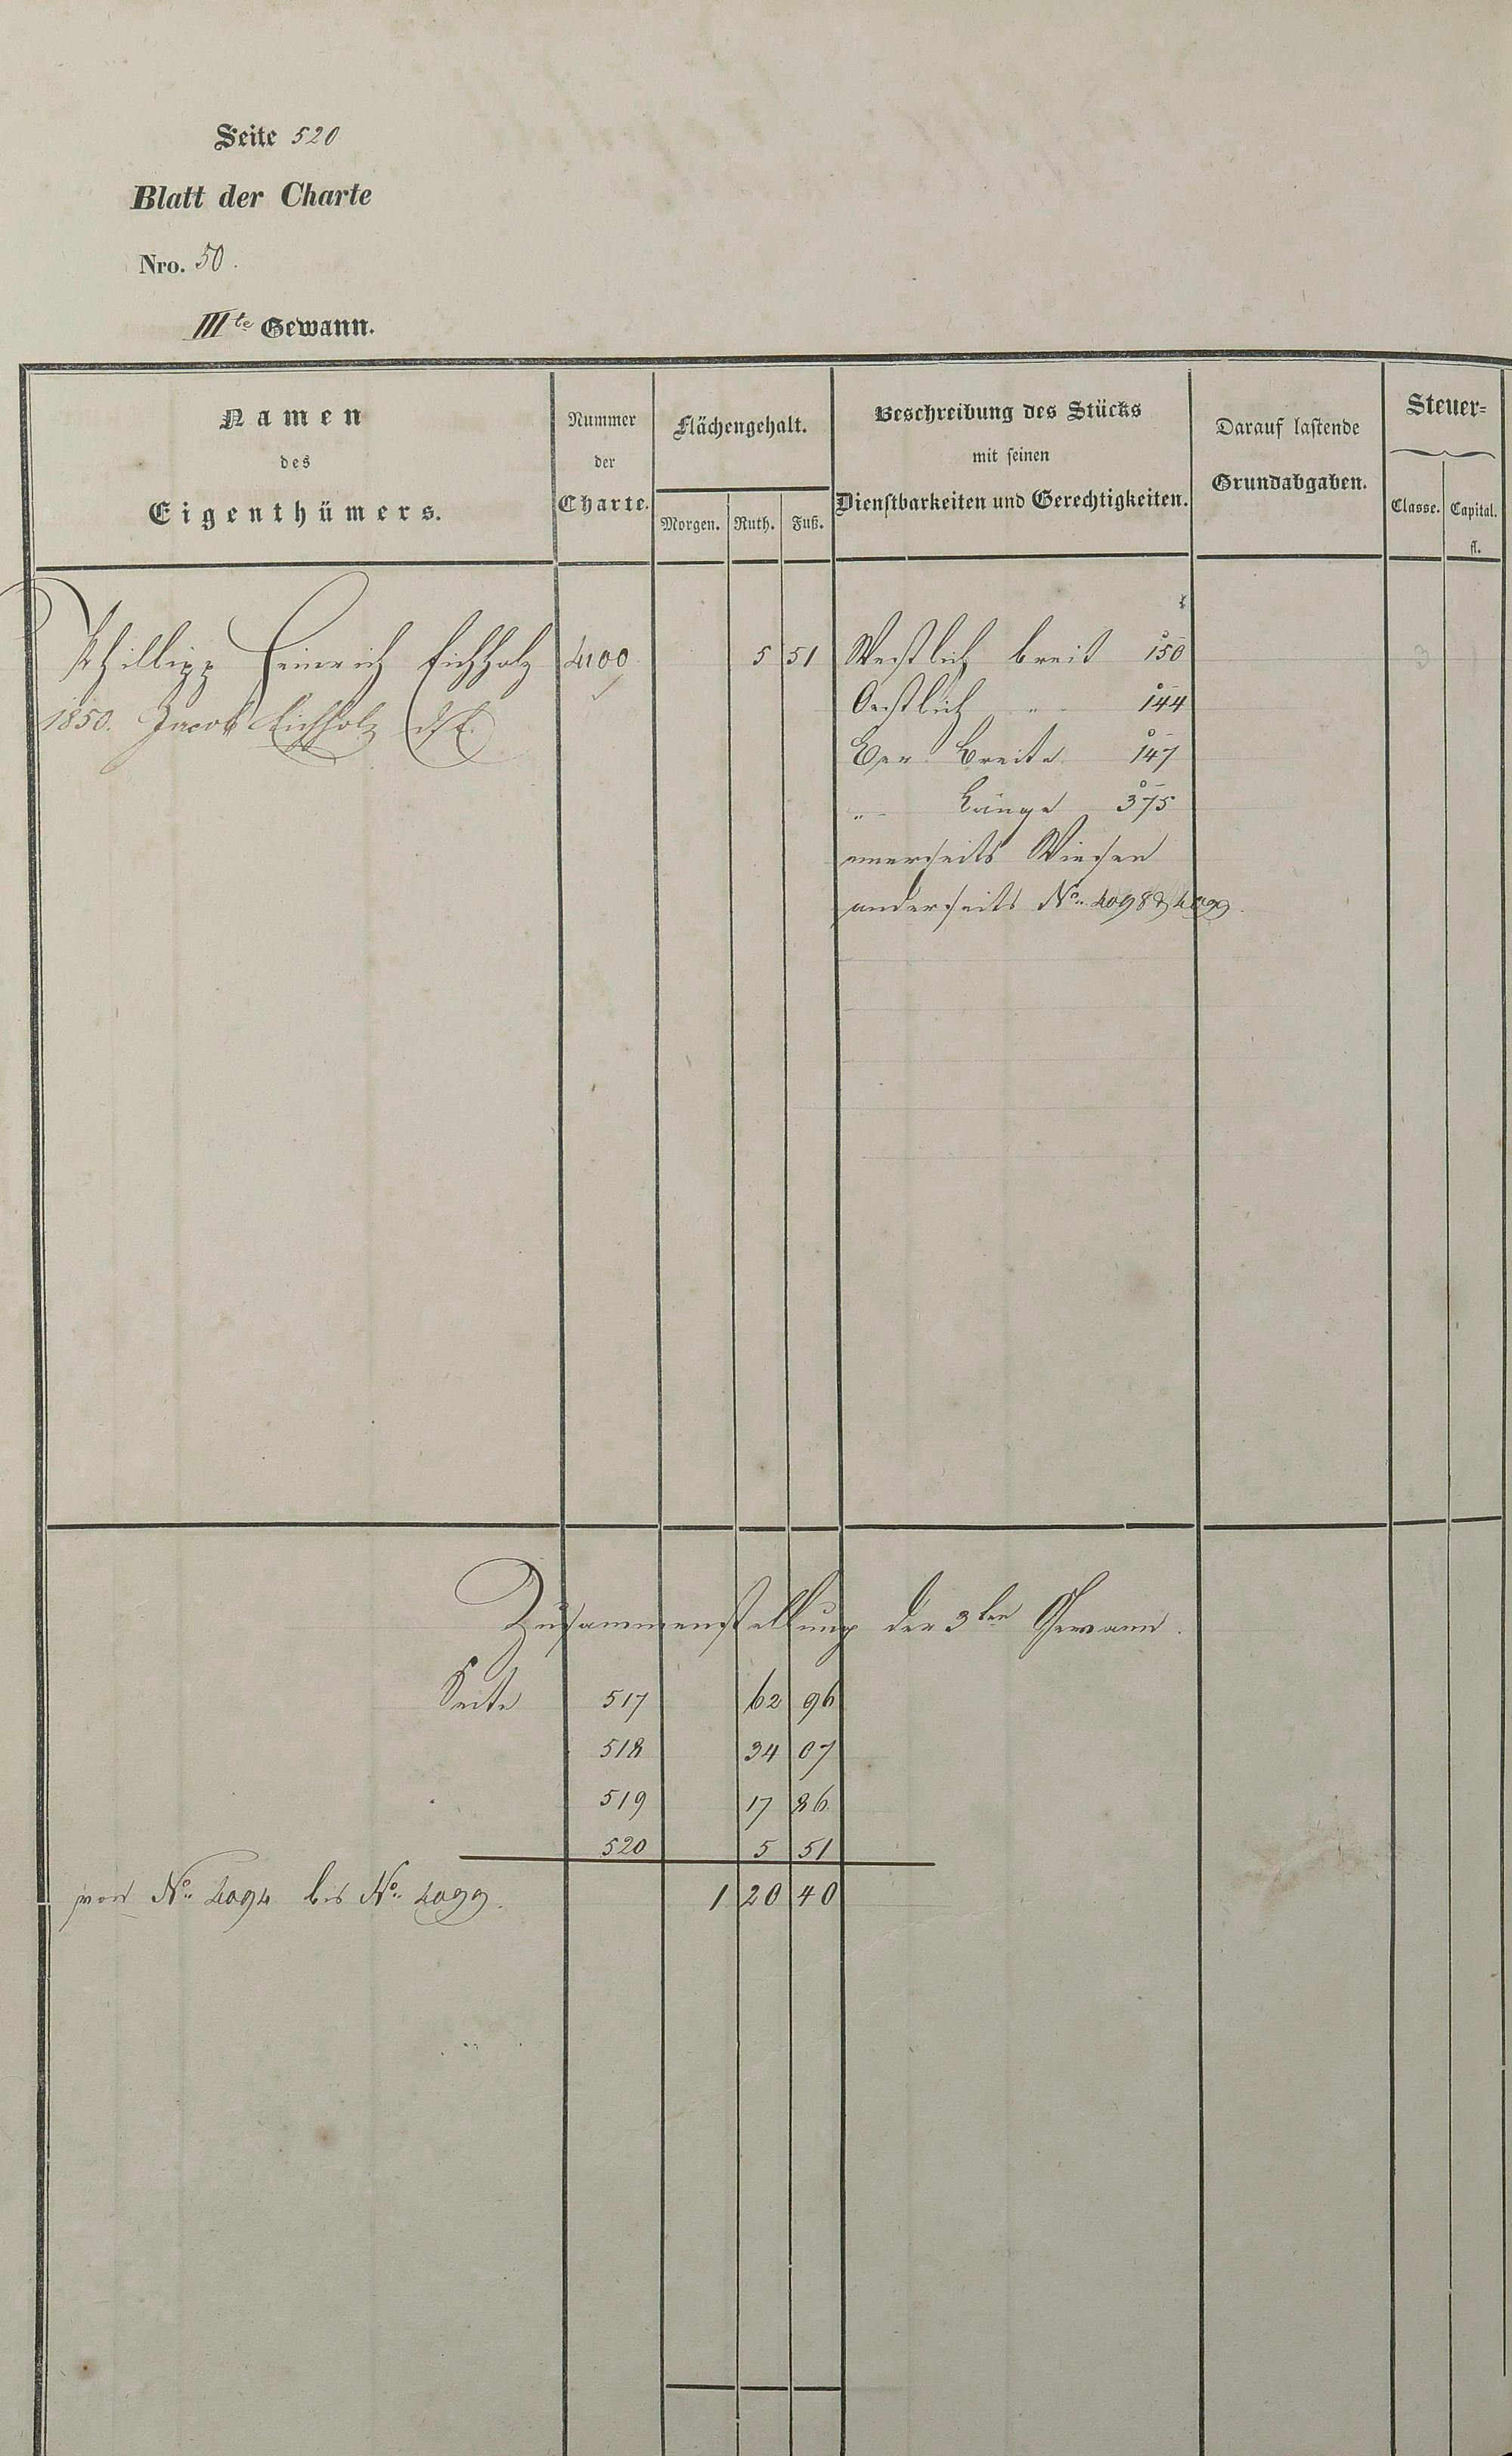 Seite 520
Blatt der Charte
Nro. 50.
IIIte Gewann.
Namen
des
Eigenthümers.
Nummer
der
Charte.
Flächengehalt.
Morgen. Ruth. Fuß.
Beschreibung des Stücks
mit seinen
Dienstbarkeiten und Gerechtigkeiten.
Darauf lastende
Grundabgaben.
Steuer=
Classe. Capital.
fl.
Phillipp Heinrich Eichholz 4100 5 51 Westlich breit 150 3
1850. Jacob Eichholz Oestlich „ 144
Ber. Breite 147
„ Länge 375
einerseits Wiesen
anderseits No. 4098 & 4099.
Zusammenstellung der 3ten Gewann.
Seite 517 62 96
518 34 07
519 17 86
520 5 51
von No. 4094 bis No. 4099. 1 20 40